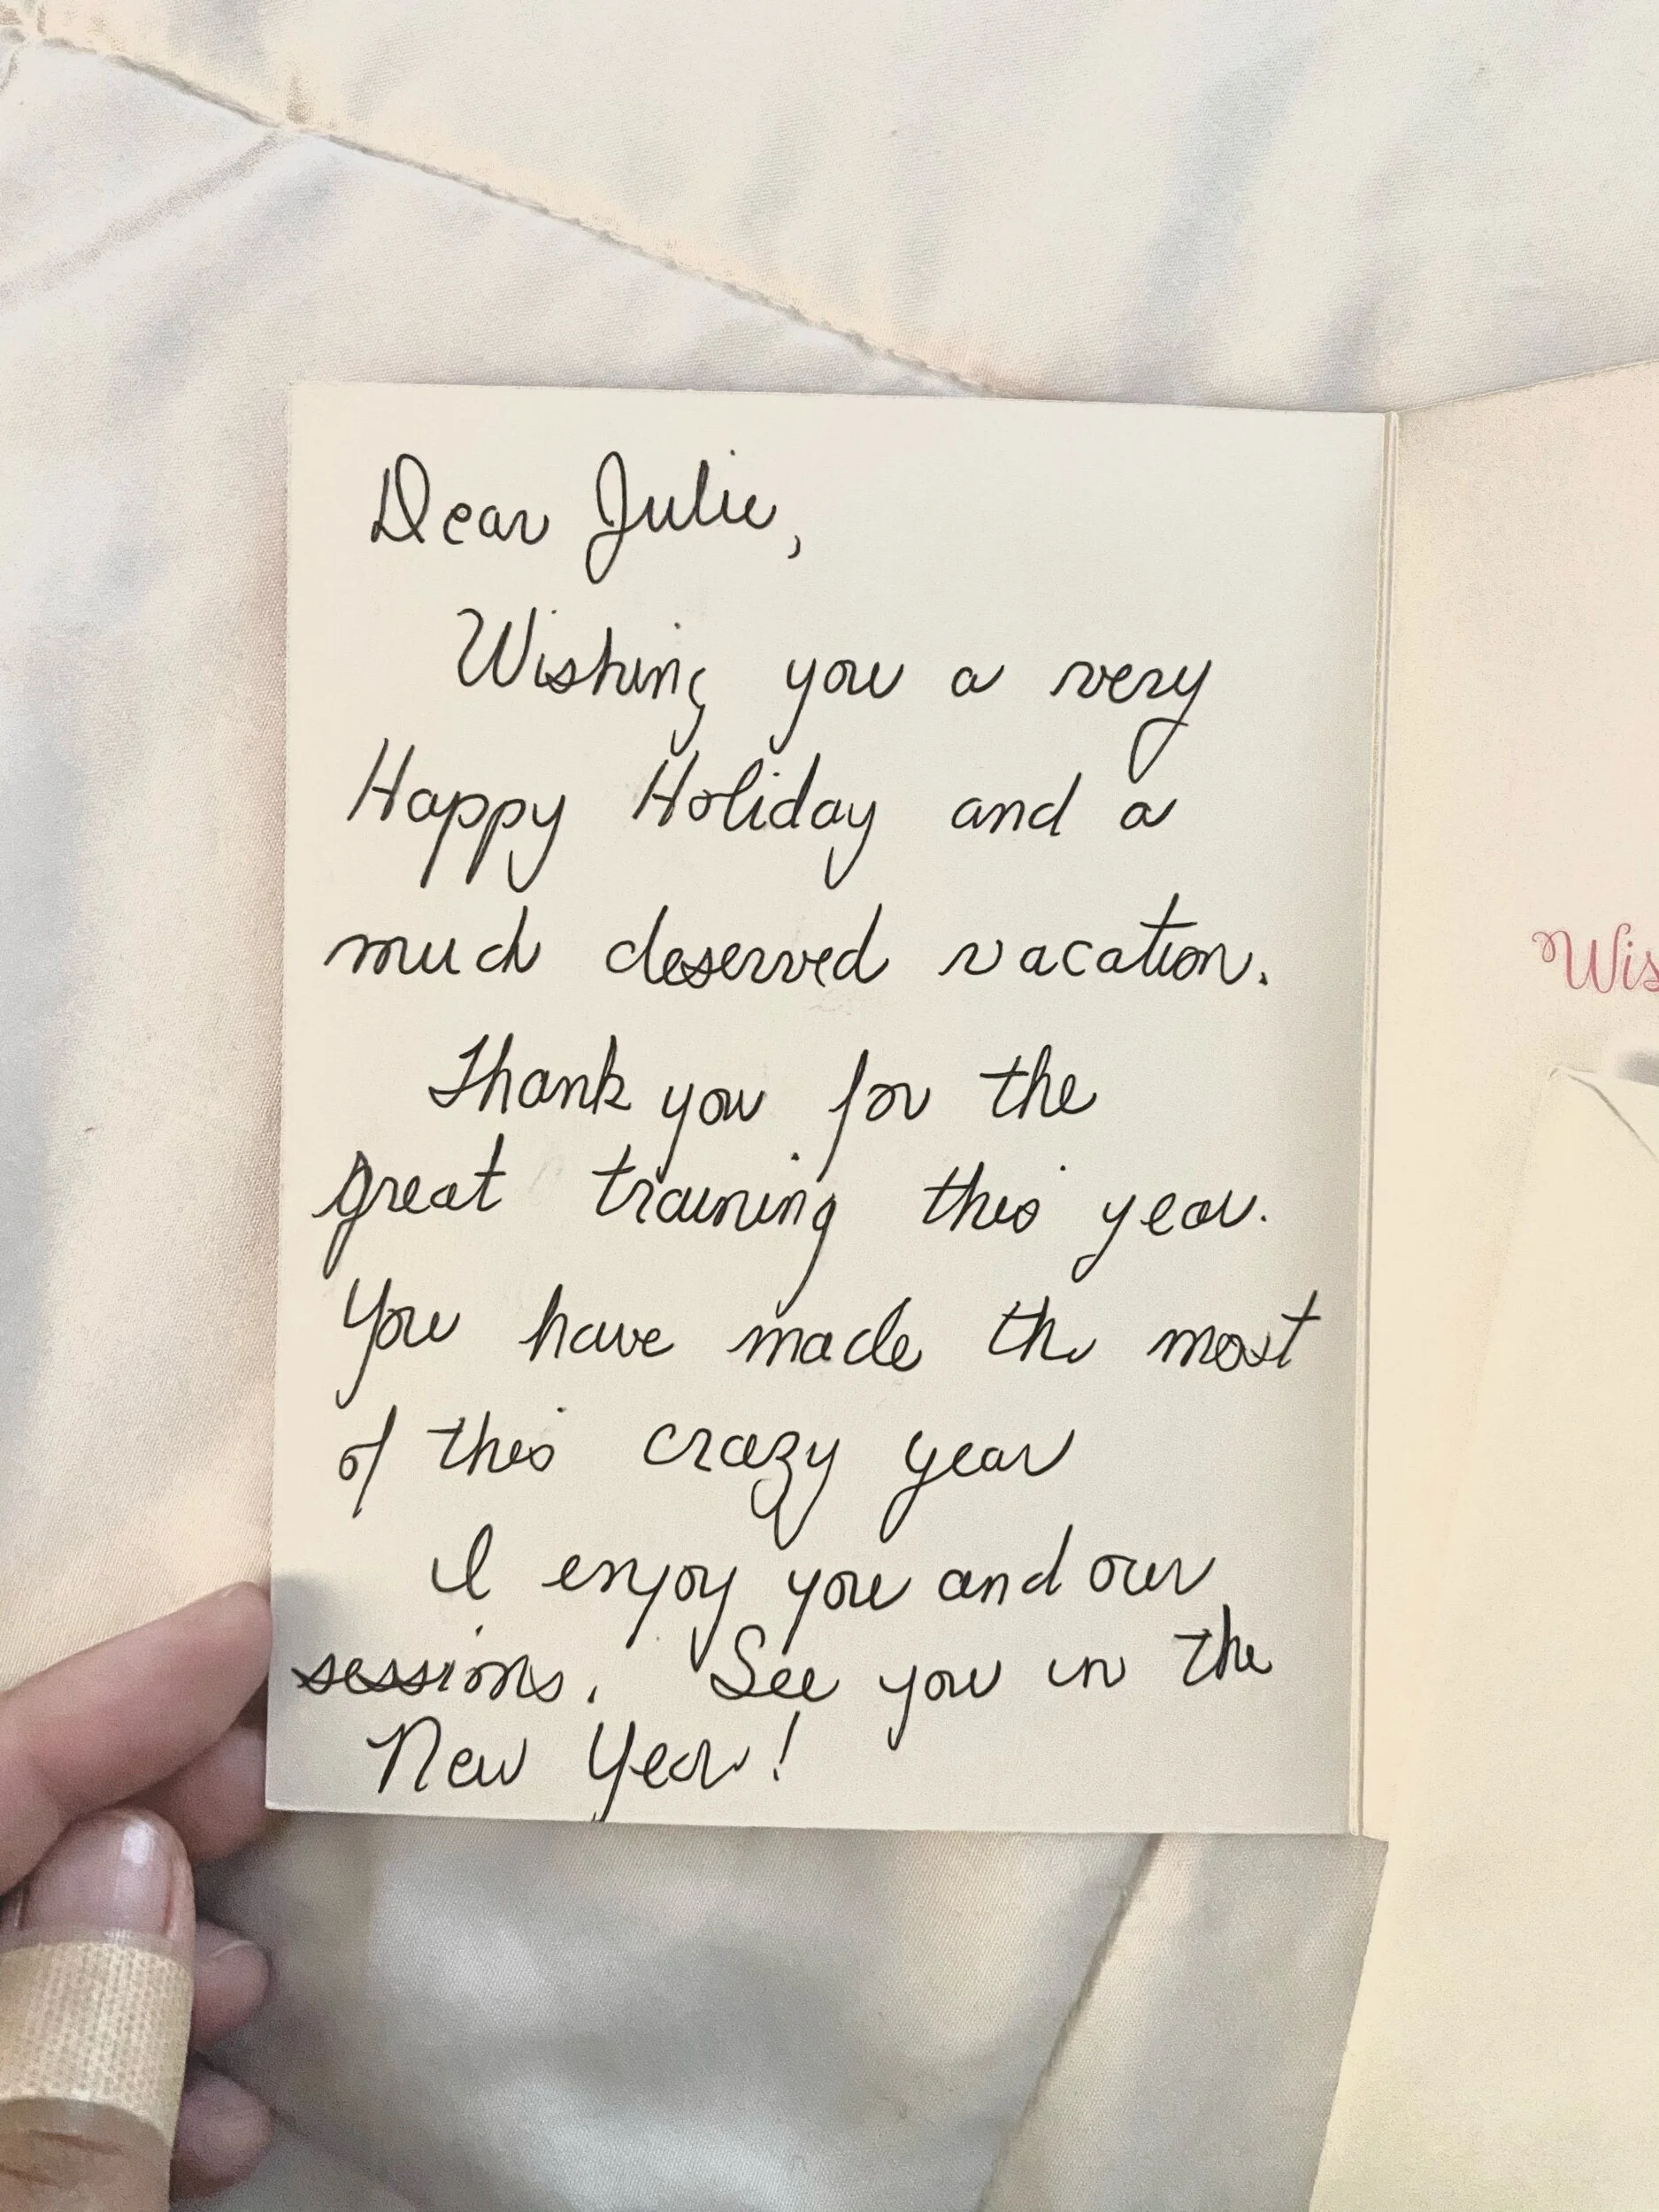 Dear Julie,
Wishing you a very
Happy Holiday and a
much deserved vacation.
Thank you for the
great training this year.
You have made the most
of this crazy year
I enjoy you and our
sessions. See you in the
New Year!
Wis